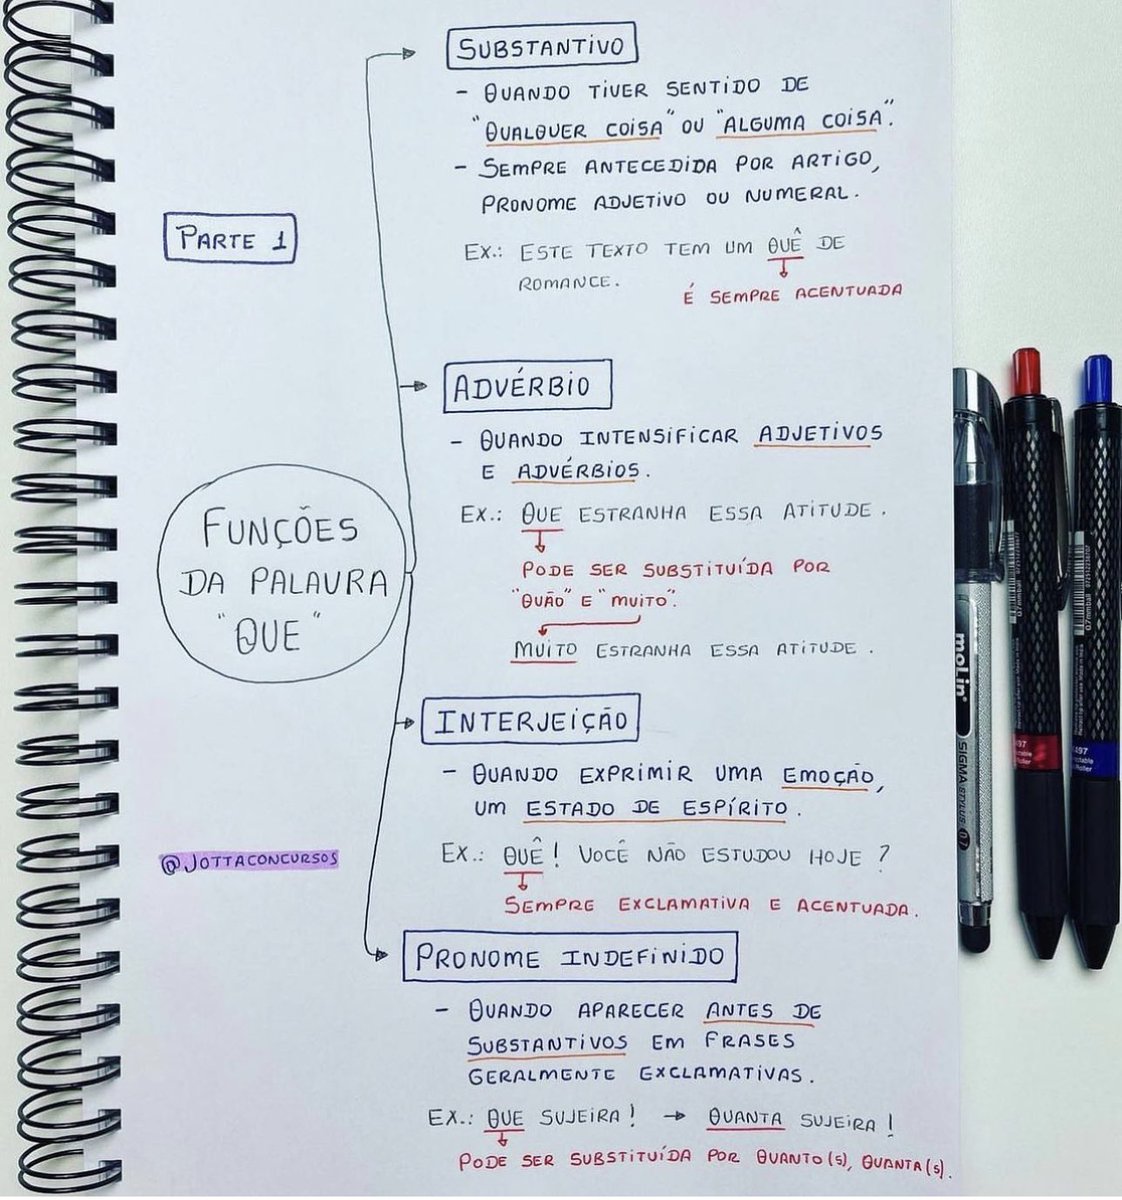 SUBSTANTIVO
- QUANDO TIVER SENTIDO DE
"QUALQUER COISA" OU "ALGUMA COISA".
- SEMPRE ANTECEDIDA POR ARTIGO,
PRONOME ADJETIVO OU NUMERAL.
EX.: ESTE TEXTO TEM UM QUÊ DE
ROMANCE.
É SEMPRE ACENTUADA
PARTE 1
ADVÉRBIO
- QUANDO INTENSIFICAR ADJETIVOS
E ADVÉRBIOS.
EX.: QUE ESTRANHA ESSA ATITUDE.
PODE SER SUBSTITUÍDA POR
"QUÃO" E "MUITO".
MUITO ESTRANHA ESSA ATITUDE.
FUNÇÕES
DA PALAVRA
"QUE"
INTERJEIÇÃO
- QUANDO EXPRIMIR UMA EMOÇÃO,
UM ESTADO DE ESPÍRITO.
EX.: QUÊ! VOCÊ NÃO ESTUDOU HOJE?
SEMPRE EXCLAMATIVA E ACENTUADA.
@JOTTACONCURSOS
PRONOME INDEFINIDO
- QUANDO APARECER ANTES DE
SUBSTANTIVOS EM FRASES
GERALMENTE EXCLAMATIVAS.
EX.: QUE SUJEIRA! → QUANTA SUJEIRA!
PODE SER SUBSTITUÍDA POR QUANTO(S), QUANTA(S).
molin
SIGMA STYLUS 07